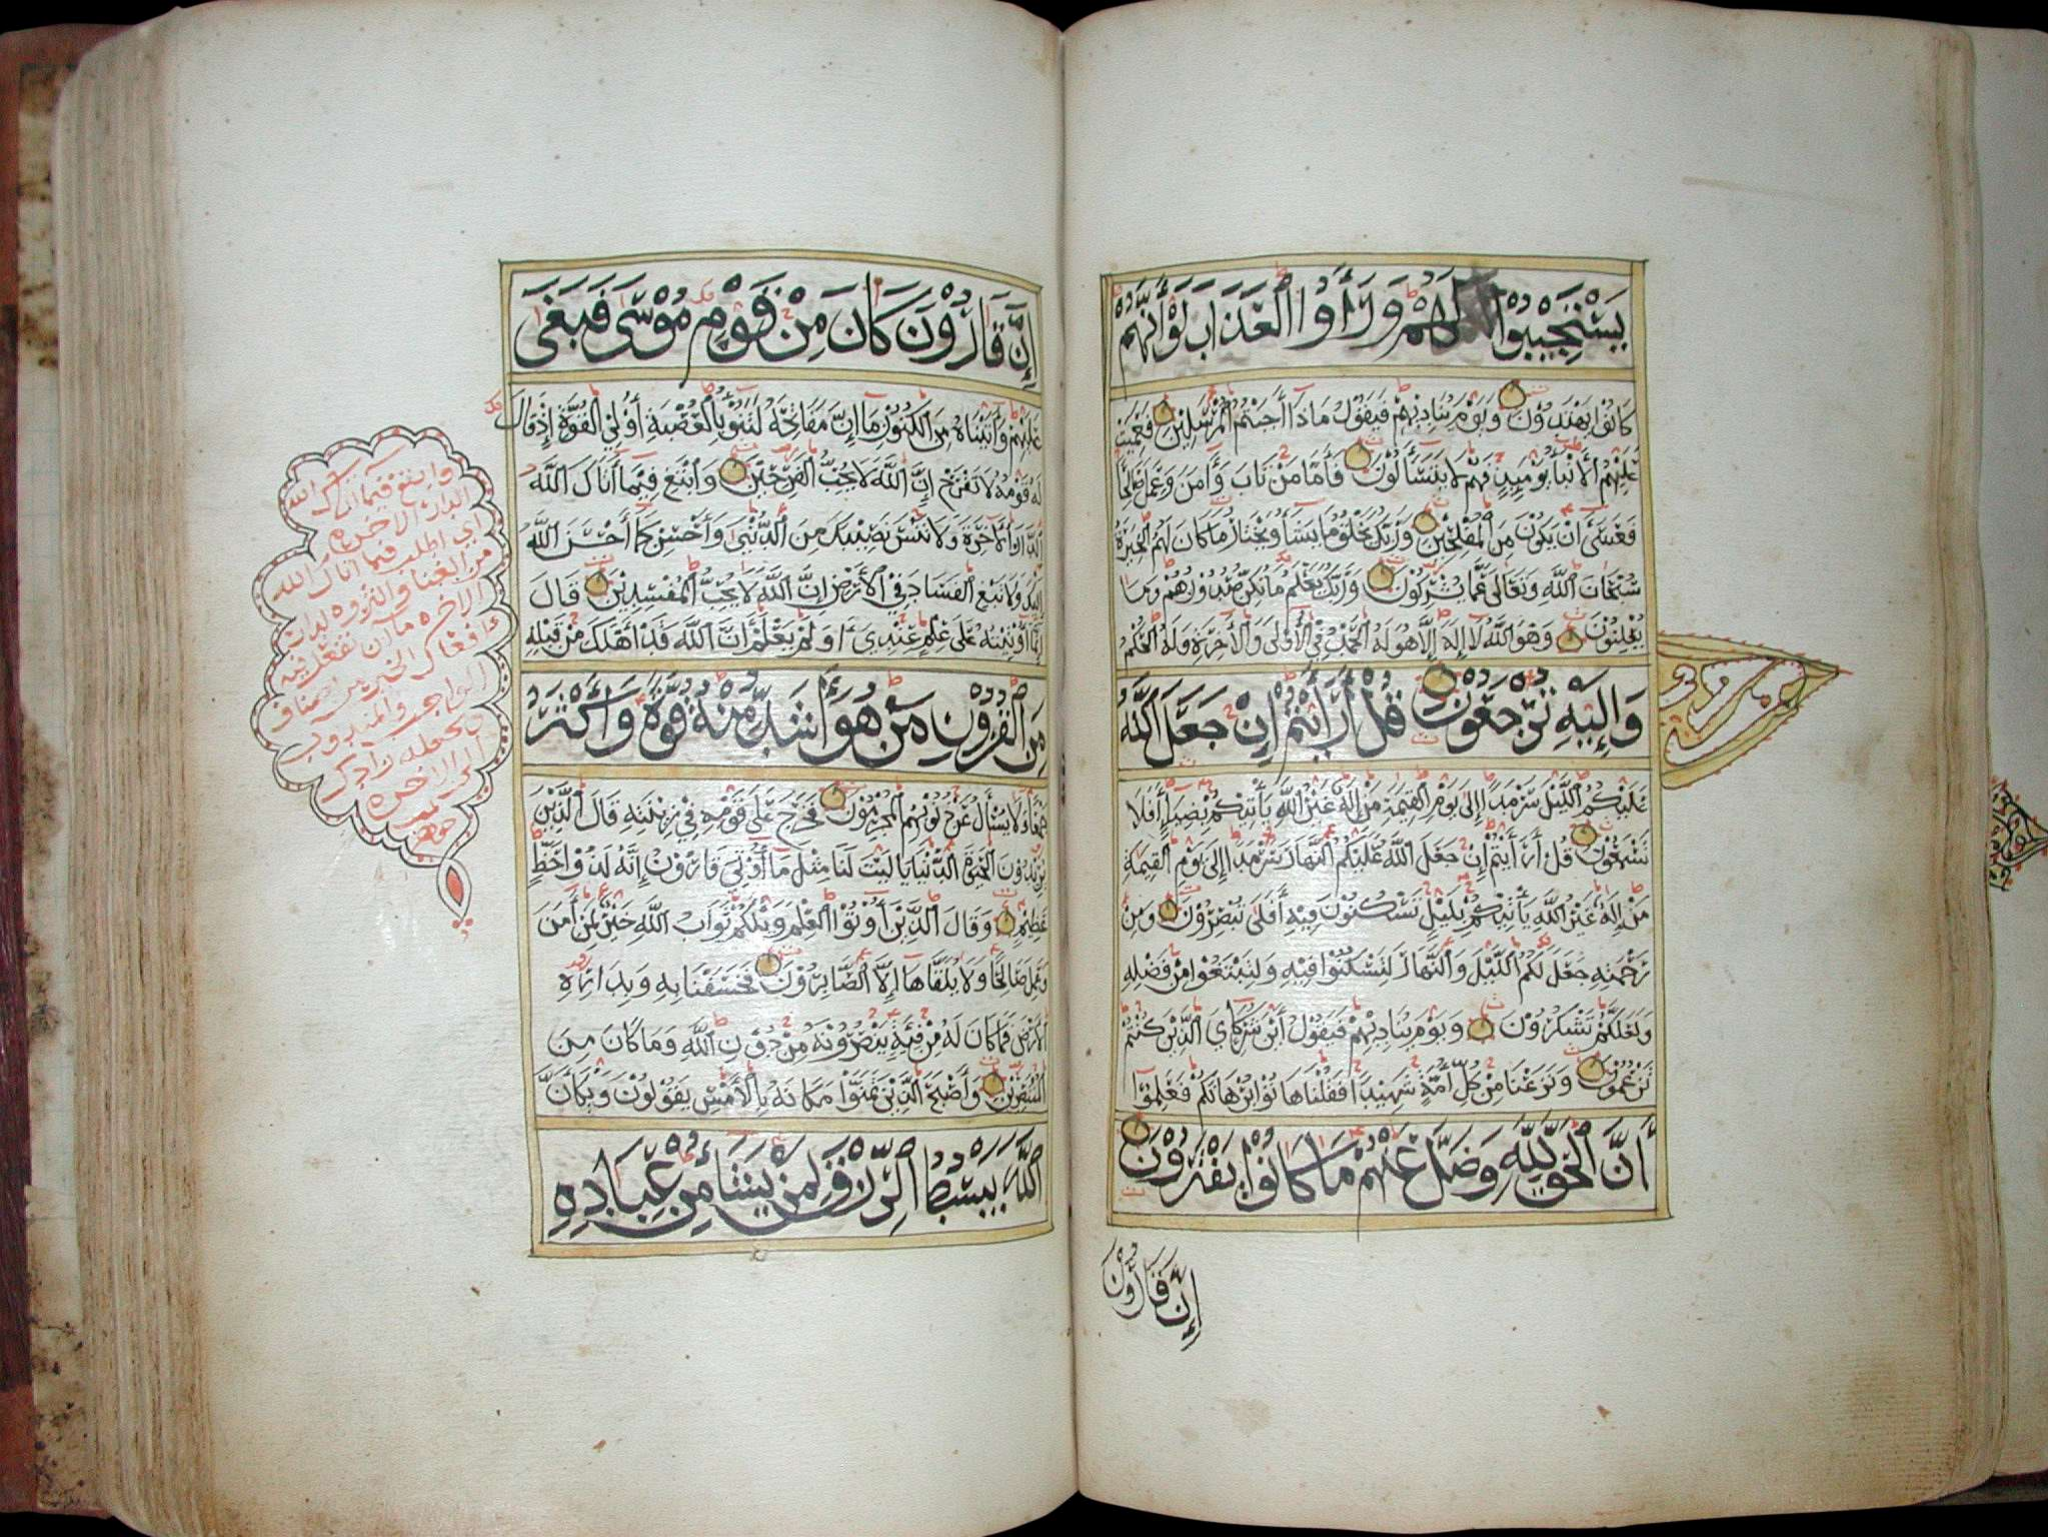 يَسْتَجِيبُوا لَهُمْ وَرَأَوُا الْعَذَابَ لَوْ أَنَّهُمْ
كَانُوا يَهْتَدُونَ وَيَوْمَ يُنَادِيهِمْ فَيَقُولُ مَاذَا أَجَبْتُمُ الْمُرْسَلِينَ فَعَمِيَتْ
عَلَيْهِمُ الْأَنْبَاءُ يَوْمَئِذٍ فَهُمْ لَا يَتَسَاءَلُونَ فَأَمَّا مَنْ تَابَ وَآمَنَ وَعَمِلَ صَالِحًا
فَعَسَىٰ أَنْ يَكُونَ مِنَ الْمُفْلِحِينَ وَرَبُّكَ يَخْلُقُ مَا يَشَاءُ وَيَخْتَارُ مَا كَانَ لَهُمُ الْخِيَرَةُ
سُبْحَانَ اللَّهِ وَتَعَالَى عَمَّا يُشْرِكُونَ وَرَبُّكَ يَعْلَمُ مَا تُكِنُّ صُدُورُهُمْ وَمَا
يُعْلِنُونَ وَهُوَ اللَّهُ لَا إِلَهَ إِلَّا هُوَ لَهُ الْحَمْدُ فِي الْأُولَى وَالْآخِرَةِ وَلَهُ الْحُكْمُ
وَإِلَيْهِ تُرْجَعُونَ قُلْ أَرَأَيْتُمْ إِنْ جَعَلَ اللَّهُ
عَلَيْكُمُ اللَّيْلَ سَرْمَدًا إِلَى يَوْمِ الْقِيَمَةِ مَنْ إِلَهٌ غَيْرُ اللَّهِ يَأْتِيكُمْ بِضِيَاءٍ أَفَلَا
تَسْمَعُونَ قُلْ أَرَأَيْتُمْ إِنْ جَعَلَ اللَّهُ عَلَيْكُمُ النَّهَارَ سَرْمَدًا إِلَى يَوْمِ الْقِيَمَةِ
مَنْ إِلَهٌ غَيْرُ اللَّهِ يَأْتِيكُمْ بِلَيْلٍ تَسْكُنُونَ فِيهِ أَفَلَا تُبْصِرُونَ وَمِنْ
رَحْمَتِهِ جَعَلَ لَكُمُ اللَّيْلَ وَالنَّهَارَ لِتَسْكُنُوا فِيهِ وَلِتَبْتَغُوا مِنْ فَضْلِهِ
وَلَعَلَّكُمْ تَشْكُرُونَ وَيَوْمَ يُنَادِيهِمْ فَيَقُولُ أَيْنَ شُرَكَاءِيَ الَّذِينَ كُنْتُمْ
تَزْعُمُونَ وَنَزَعْنَا مِنْ كُلِّ أُمَّةٍ شَهِيدًا فَقُلْنَا هَاتُوا بُرْهَانَكُمْ فَعَلِمُوا
أَنَّ الْحَقَّ لِلَّهِ وَضَلَّ عَنْهُمْ مَا كَانُوا يَفْتَرُونَ
إِنَّ قَارُونَ
إِنَّ قَارُونَ كَانَ مِنْ قَوْمِ مُوسَى فَبَغَى
عَلَيْهِمْ وَآتَيْنَاهُ مِنَ الْكُنُوزِ مَا إِنَّ مَفَاتِحَهُ لَتَنُوءُ بِالْعُصْبَةِ أُولِي الْقُوَّةِ إِذْ قَالَ
لَهُ قَوْمُهُ لَا تَفْرَحْ إِنَّ اللَّهَ لَا يُحِبُّ الْفَرِحِينَ وَابْتَغِ فِيمَا آتَاكَ اللَّهُ
الدَّارَ الْآخِرَةَ وَلَا تَنْسَ نَصِيبَكَ مِنَ الدُّنْيَا وَأَحْسِنْ كَمَا أَحْسَنَ اللَّهُ
إِلَيْكَ وَلَا تَبْغِ الْفَسَادَ فِي الْأَرْضِ إِنَّ اللَّهَ لَا يُحِبُّ الْمُفْسِدِينَ قَالَ
إِنَّمَا أُوتِيتُهُ عَلَى عِلْمٍ عِنْدِي أَوَلَمْ يَعْلَمْ أَنَّ اللَّهَ قَدْ أَهْلَكَ مِنْ قَبْلِهِ
مِنَ الْقُرُونِ مَنْ هُوَ أَشَدُّ مِنْهُ قُوَّةً وَأَكْثَرُ
جَمْعًا وَلَا يُسْأَلُ عَنْ ذُنُوبِهِمُ الْمُجْرِمُونَ فَخَرَجَ عَلَى قَوْمِهِ فِي زِينَتِهِ قَالَ الَّذِينَ
يُرِيدُونَ الْحَيَوةَ الدُّنْيَا يَا لَيْتَ لَنَا مِثْلَ مَا أُوتِيَ قَارُونُ إِنَّهُ لَذُو حَظٍّ
عَظِيمٍ وَقَالَ الَّذِينَ أُوتُوا الْعِلْمَ وَيْلَكُمْ ثَوَابُ اللَّهِ خَيْرٌ لِمَنْ آمَنَ
وَعَمِلَ صَالِحًا وَلَا يُلَقَّاهَا إِلَّا الصَّابِرُونَ فَخَسَفْنَا بِهِ وَبِدَارِهِ
الْأَرْضَ فَمَا كَانَ لَهُ مِنْ فِئَةٍ يَنْصُرُونَهُ مِنْ دُونِ اللَّهِ وَمَا كَانَ مِنَ
الْمُنْتَصِرِينَ وَأَصْبَحَ الَّذِينَ تَمَنَّوْا مَكَانَهُ بِالْأَمْسِ يَقُولُونَ وَيْكَأَنَّ
اللَّهَ يَبْسُطُ الرِّزْقَ لِمَنْ يَشَاءُ مِنْ عِبَادِهِ
وابتغ فيما اتاك الله
الدار الاخره
اي اطلب فيما اتاك الله
من الغنا والثروه لدار
الاخره